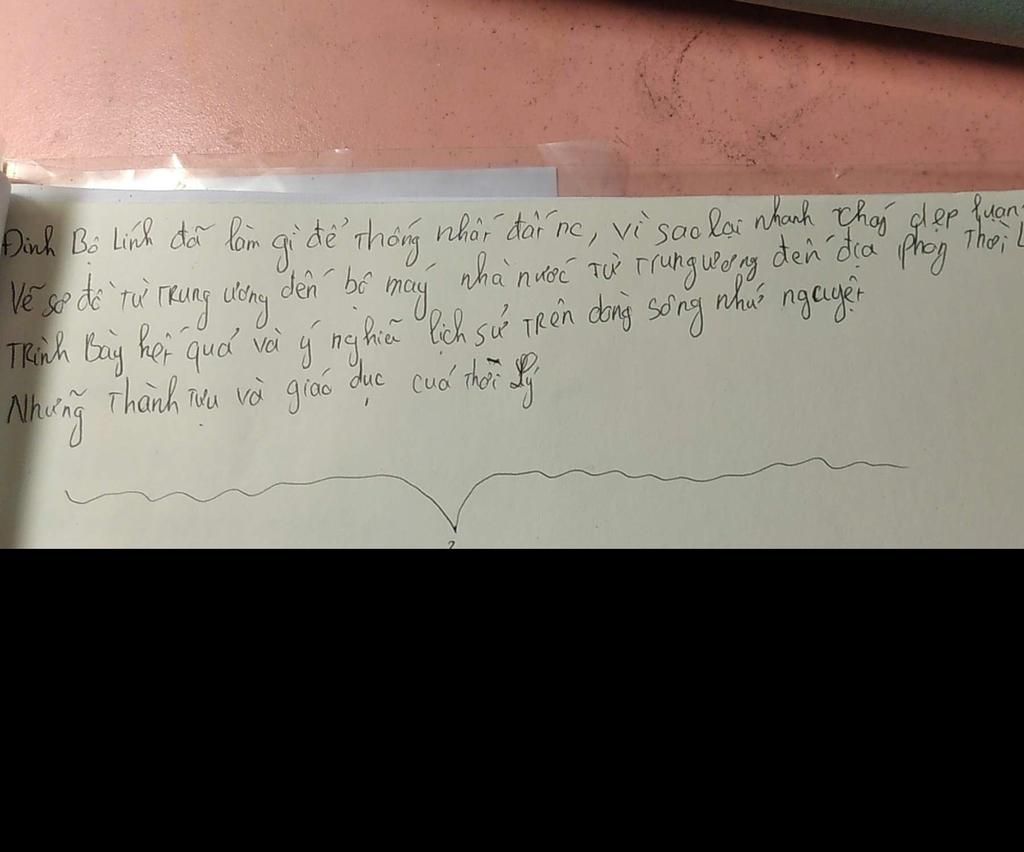 Đinh Bộ Lĩnh đã làm gì để thống nhất đất nc, vì sao lại nhanh chóg dẹp
Vẽ sơ đồ từ Trung ương đến bộ máy nhà nước từ trung ương đến địa phog thời
Trình Bày kết quả và ý nghĩa lịch sử Trên dòng sông như nguyệt
Những Thành tựu và giáo dục của thời Lý